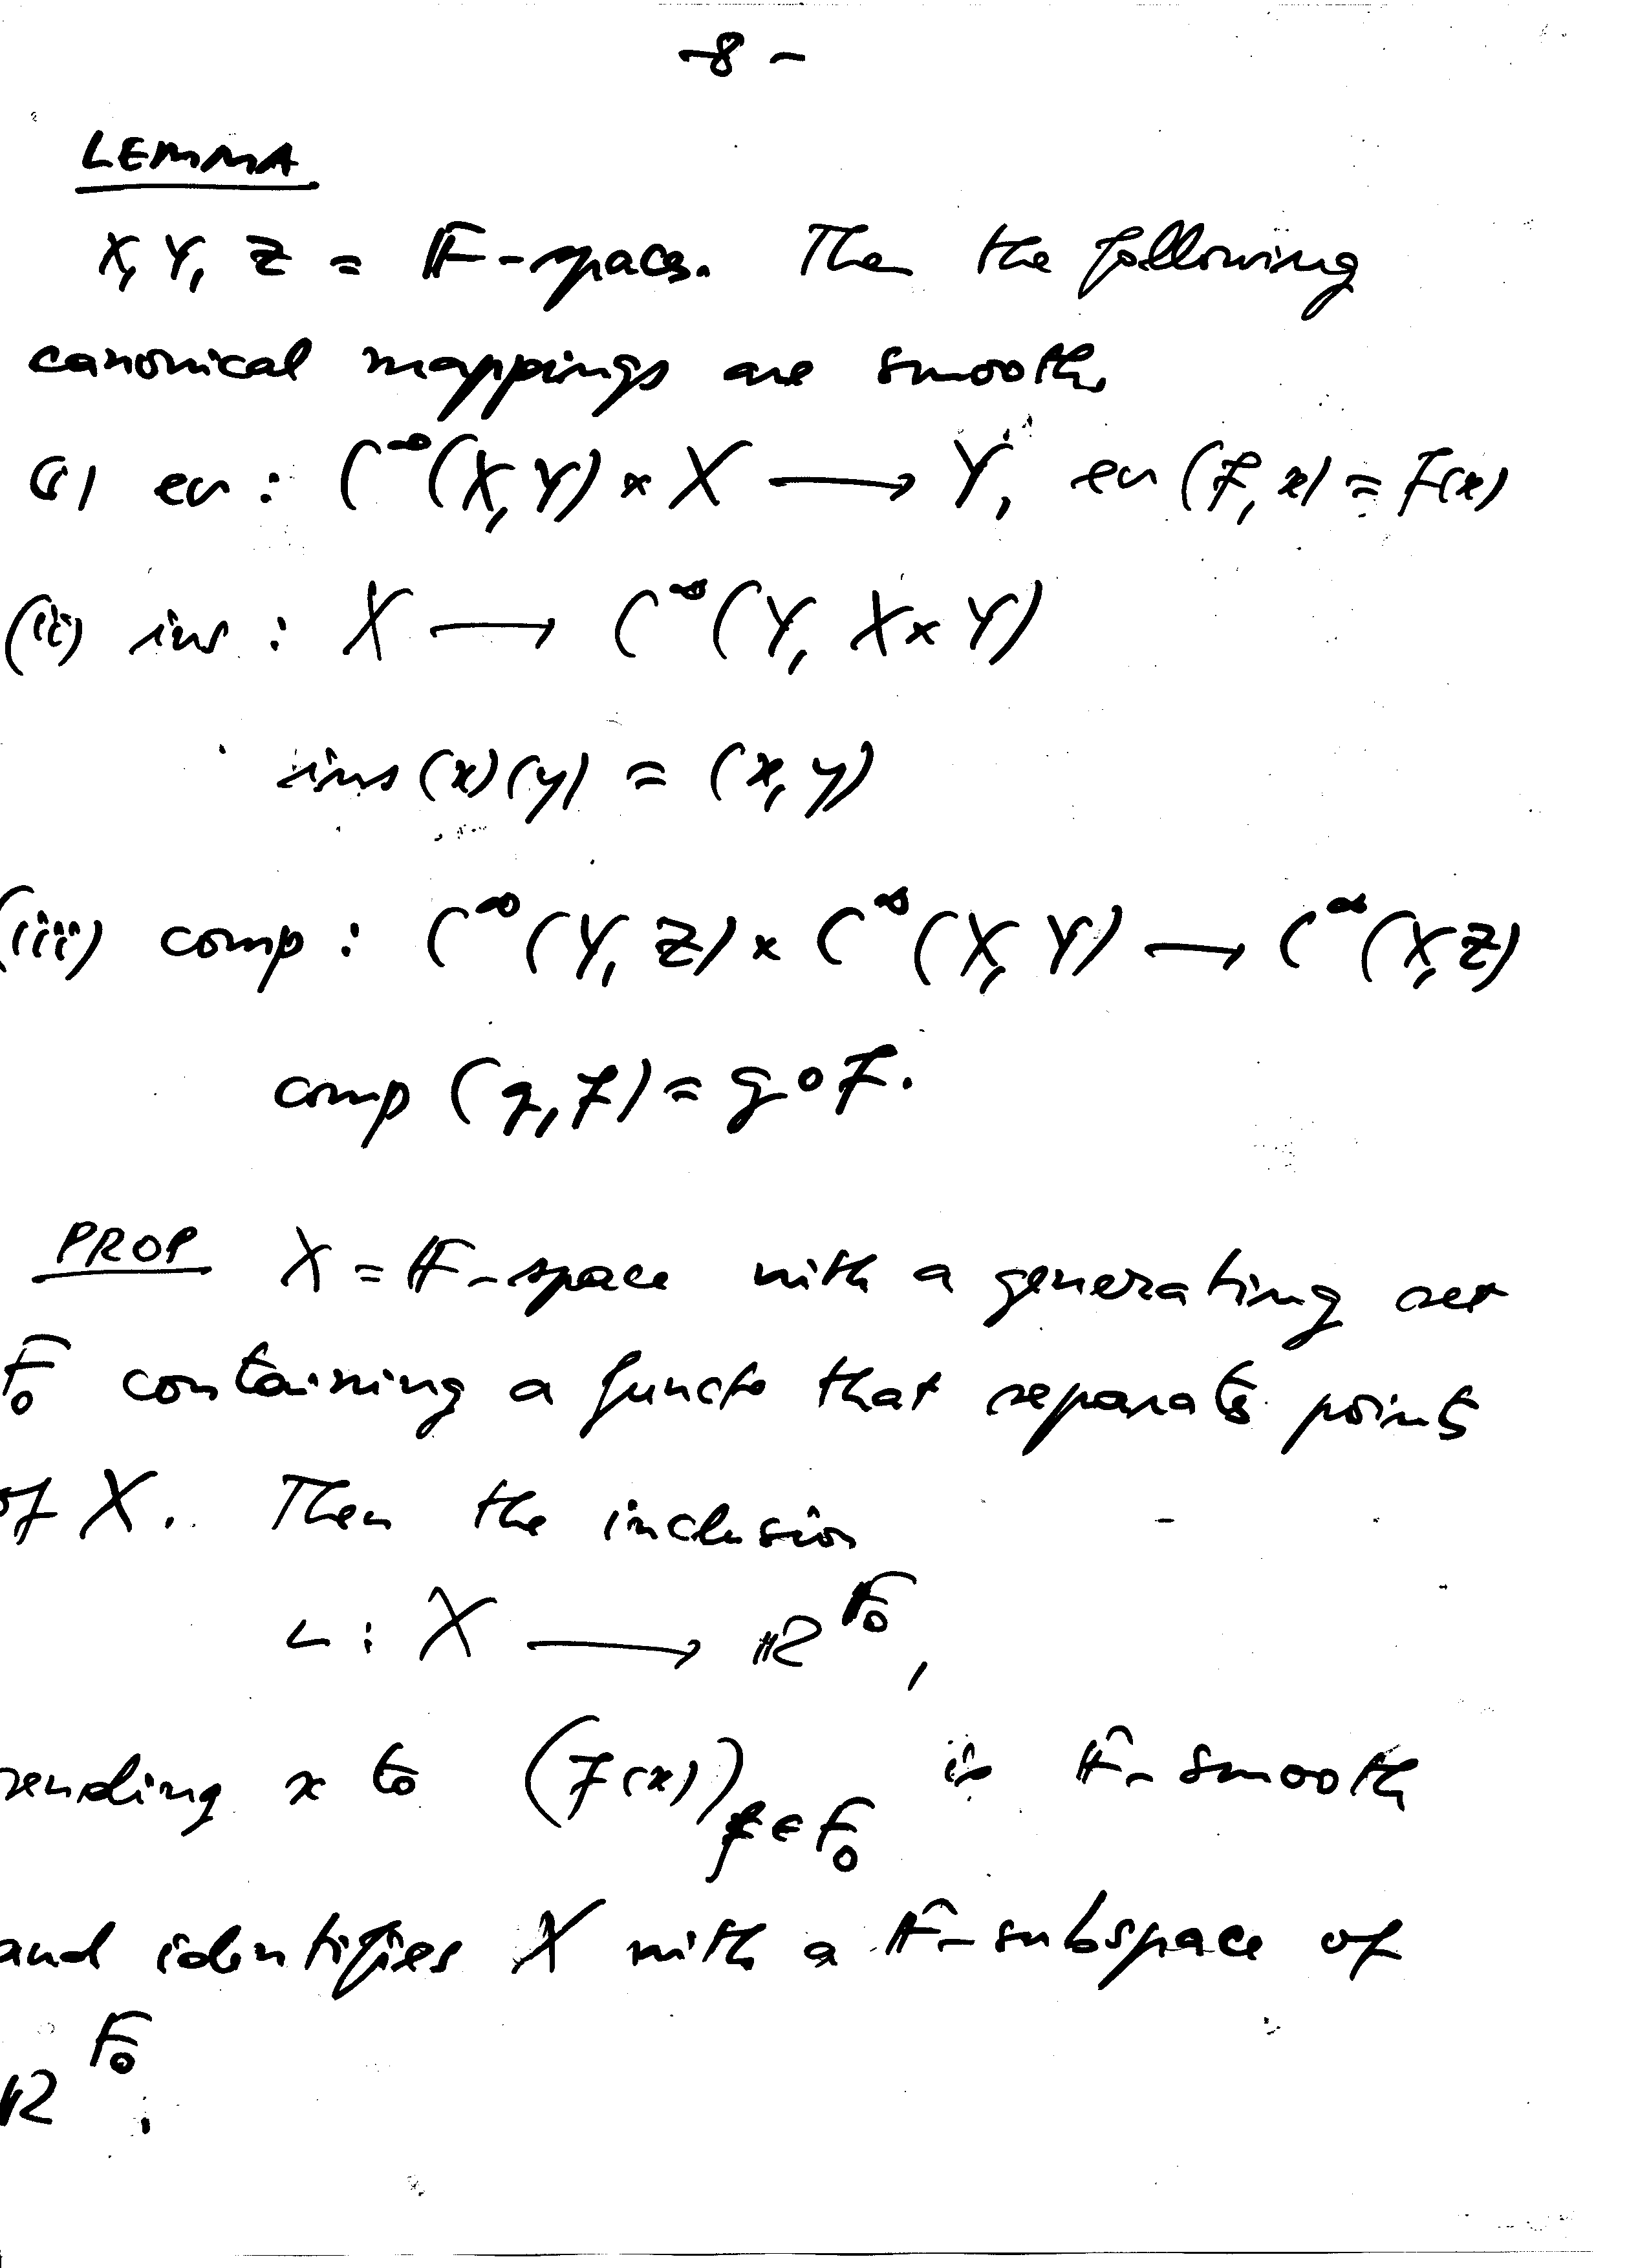 -8-
LEMMA
X, Y, Z = F-spaces. Then the following
canonical mappings are smooth
(i) ev : C^∞(X,Y) × X ⟶ Y, ev(f,x) = f(x)
(ii) ins : X ⟶ C^∞(Y, X×Y)
ins(x)(y) = (x,y)
(iii) comp : C^∞(Y,Z) × C^∞(X,Y) ⟶ C^∞(X,Z)
comp (g,f) = g∘f.
PROP X = F-space with a generating set
F₀ containing a functo that separats points
of X. Then the inclusion
ι : X ⟶ ℝ^F₀,
sending x to (f(x))_{f∈F₀} is F-smooth
and identifies X with a F-subspace of
ℝ^F₀.